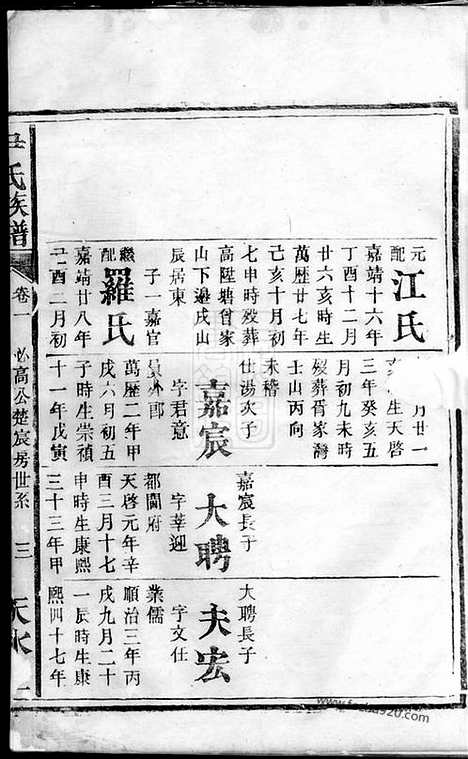 元配江氏
嘉靖十六年
丁酉十二月
廿六亥時生
萬歷廿七年
己亥十月初
七申時歿葬
高陞塘曾家
山下邊戌山
辰居東
子一嘉宦
繼配羅氏
嘉靖廿八年
己酉二月初
月廿一
生天啓
三年癸亥五
月初九未時
歿葬胥家灣
壬山丙向
未稽
仕湯次子
嘉宸
字君意
員外郎
萬歷二年甲
戌六月初五
子時生崇禎
十一年戊寅
嘉宸長子
大聘
字莘迎
都閫府
天啓元年辛
酉三月十七
申時生康熙
三十三年甲
大聘長子
夫宏
字文仕
業儒
順治三年丙
戌九月二十
一辰時生康
熙四十七年
氏族譜
卷一
必高公楚宸房世系
三
天水
www.fosba920.com